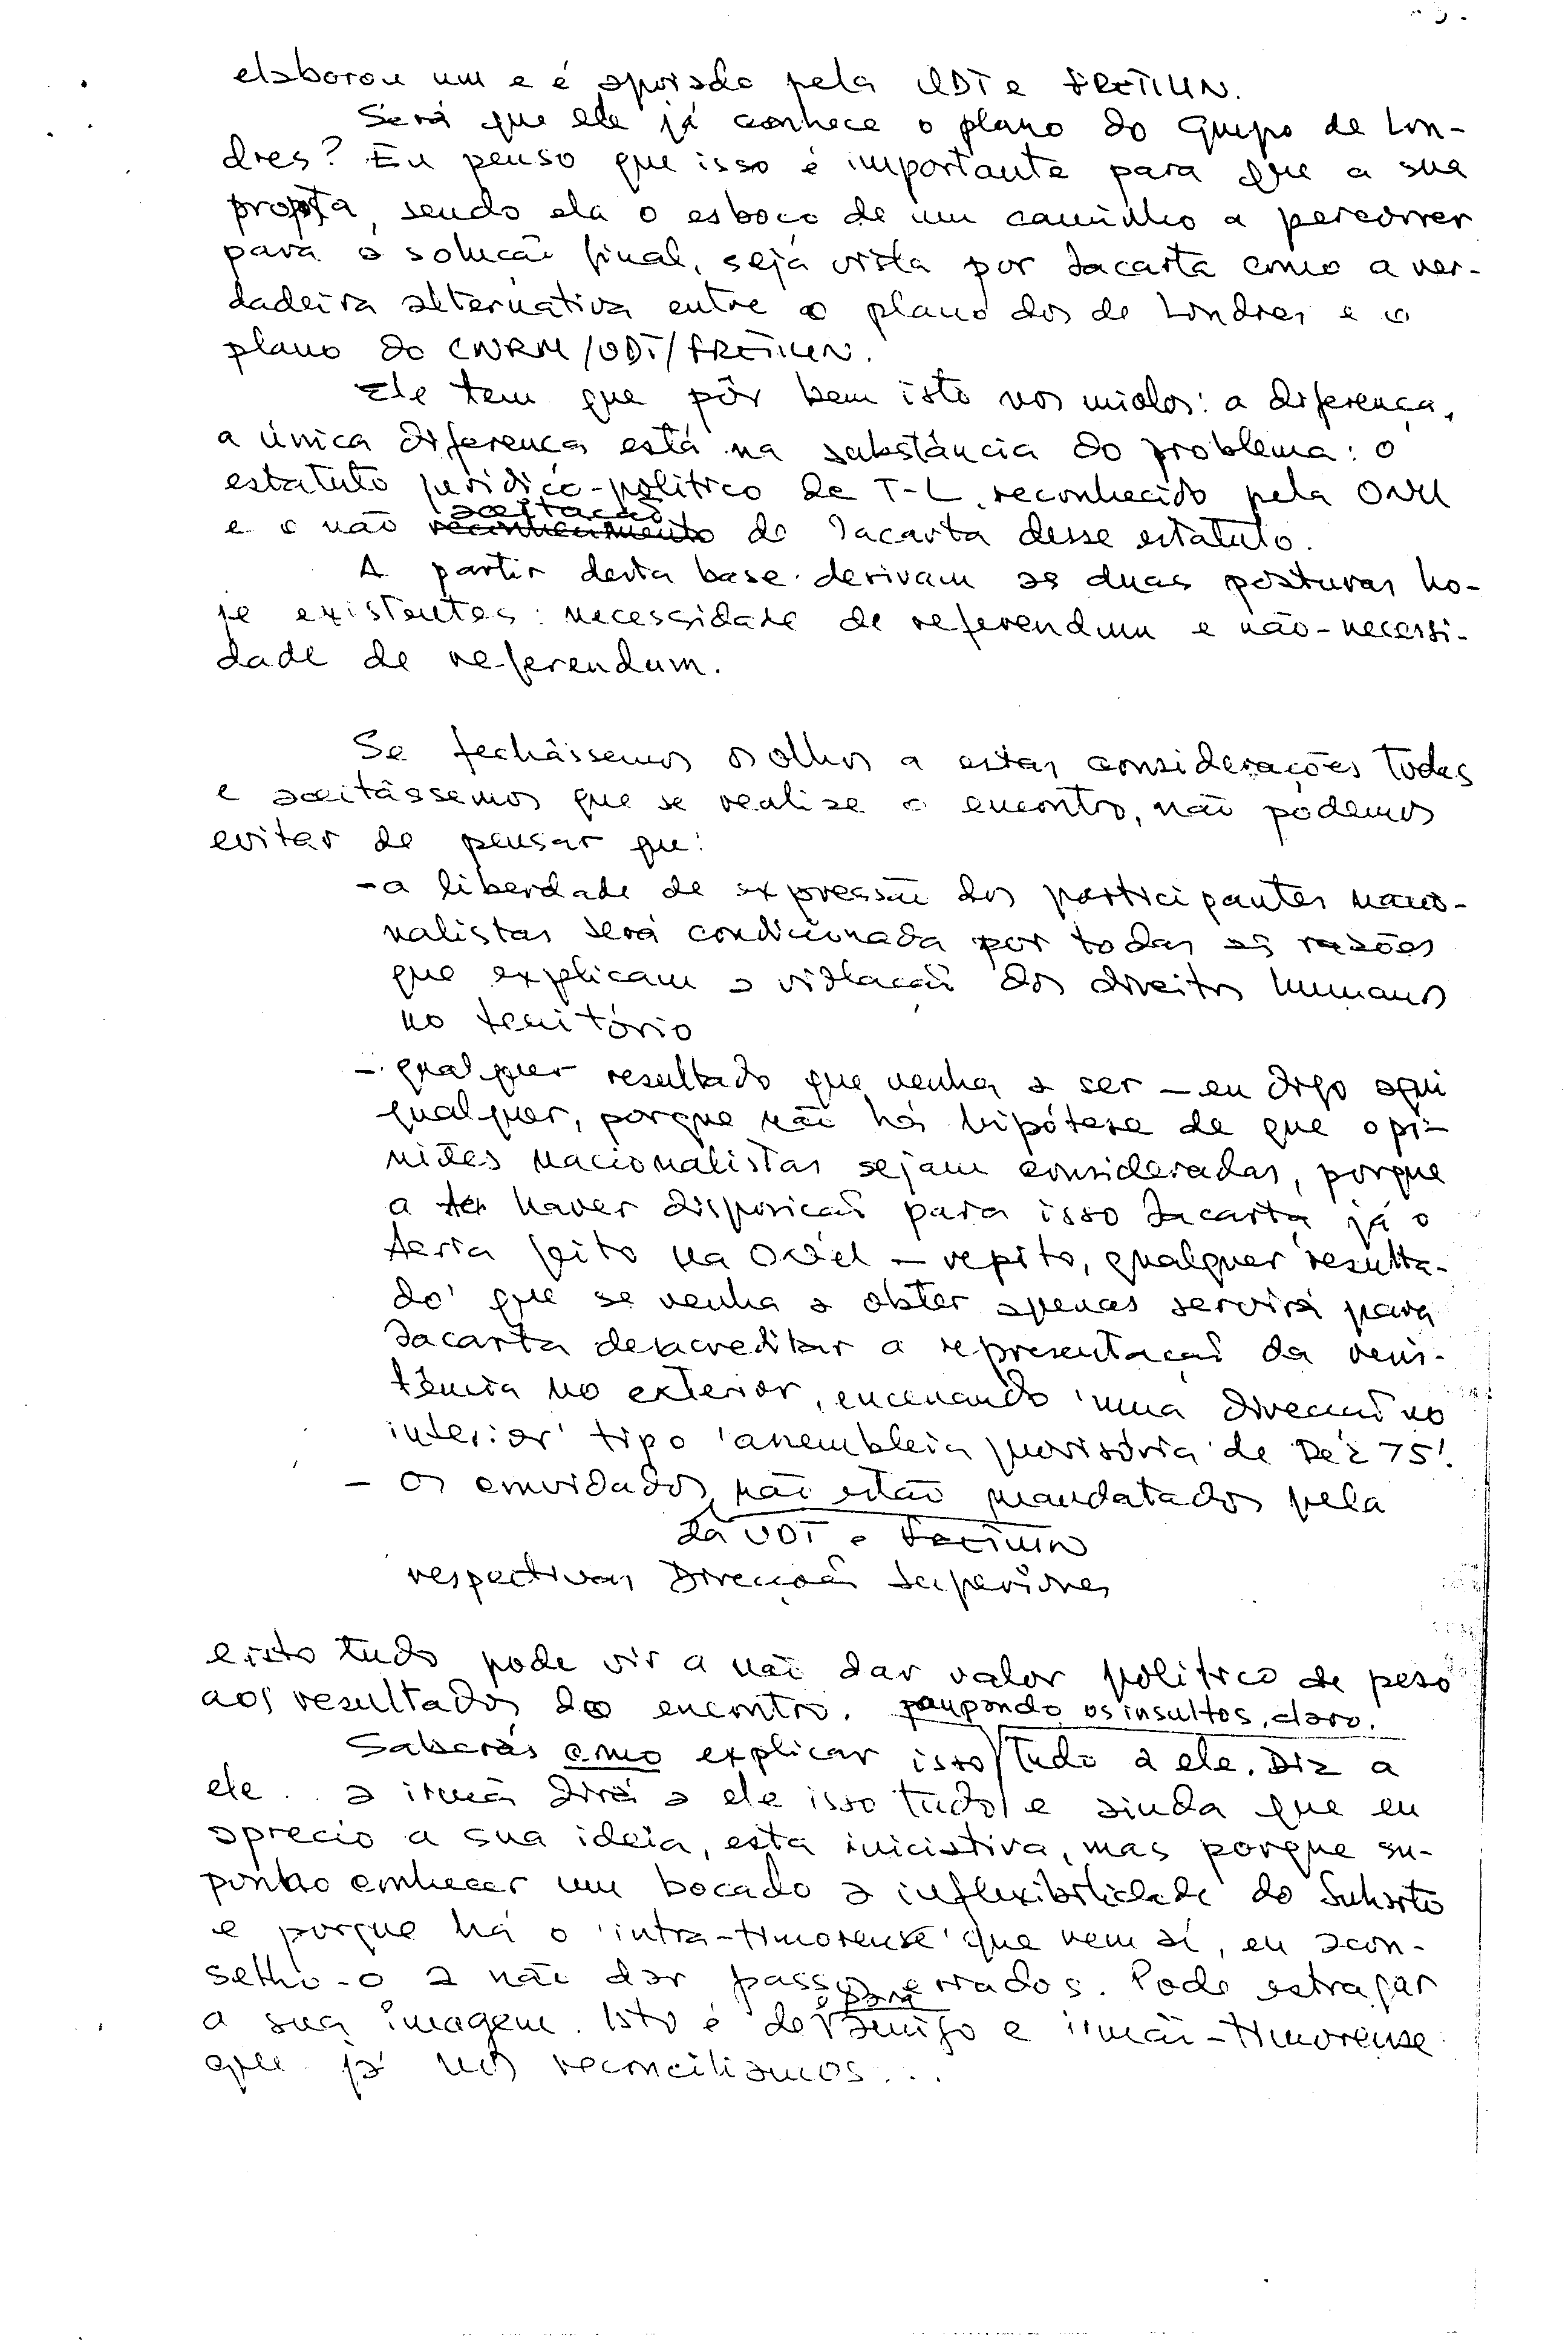 elaborou um e é apoiado pela UDT e FRETILIN.
Será que ele já conhece o plano do Grupo de Lon-
dres? Eu penso que isso é importante para que a sua
proposta, sendo ela o esboço de um caminho a percorrer
para a solução final, seja vista por Jacarta como a ver-
dadeira alternativa entre o plano dos de Londres e o
plano do CNRM/UDT/FRETILIN.
Ele tem que pôr bem isto nos miolos: a diferença,
a única diferença está na substância do problema: o
estatuto jurídico-político de T-L, reconhecido pela ONU
aceitação
e o não reconhecimento de Jacarta desse estatuto.
A partir desta base derivam as duas posturas ho-
je existentes: necessidade de referendum e não-necessi-
dade de referendum.
Se fechássemos os olhos a estas considerações todas
e aceitássemos que se realize o encontro, não podemos
evitar de pensar que:
- a liberdade de expressão dos participantes nacio-
nalistas será condicionada por todas as razões
que explicam a violação dos direitos humanos
no território
- qualquer resultado que venha a ser - eu digo aqui
qualquer, porque não há hipótese de que opi-
niões nacionalistas sejam consideradas, porque
a haver disposição para isso Jacarta já o
teria feito na ONU - repito, qualquer resulta-
do que se venha a obter apenas servirá para
Jacarta desacreditar a representação da resis-
tência no exterior, encenando 'uma direcção no
interior' tipo 'assembleia provisória de Dez 75'.
- os convidados não estão mandatados pela
da UDT e Fretilin
respectivas Direcções Superiores
e isto tudo pode vir a não dar valor político de peso
aos resultados do encontro. poupando os insultos, claro.
Saberás como explicar isso tudo a ele. Diz a
ele.. a irmã dirá a ele isso tudo e ainda que eu
aprecio a sua ideia, esta iniciativa, mas porque su-
ponho conhecer um bocado a inflexibilidade do Suharto
e porque há o 'intra-timorense' que vem aí, eu acon-
selho-o a não dar passos errados. Pode estragar
a sua imagem. Isto é de amigo e irmão-timorense
para
que já nos reconciliamos...